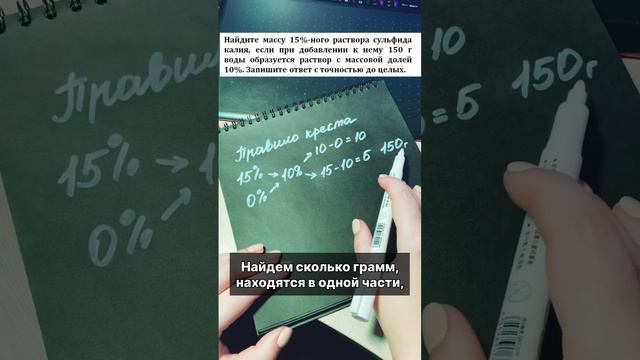 Найдите массу 15%-ного раствора сульфида
калия, если при добавлении к нему 150 г
воды образуется раствор с массовой долей
10%. Запишите ответ с точностью до целых.
Правило креста
15% → 10% 10-0=10
0% 15-10=5 150г
Найдем сколько грамм,
находятся в одной части,